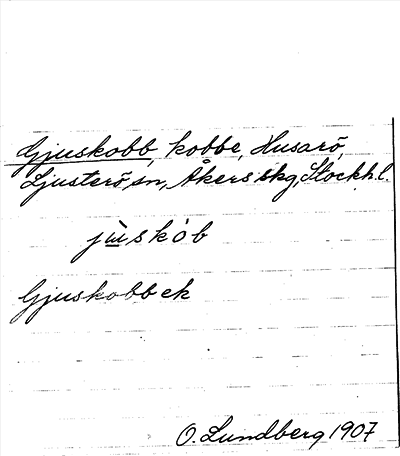 Gjuskobb, kobbe, Husarö,
Ljusterö sn, Åkers skg, Stockh.l.
jɯ̀skȯb
Gjuskobb ek
O. Lundberg 1907